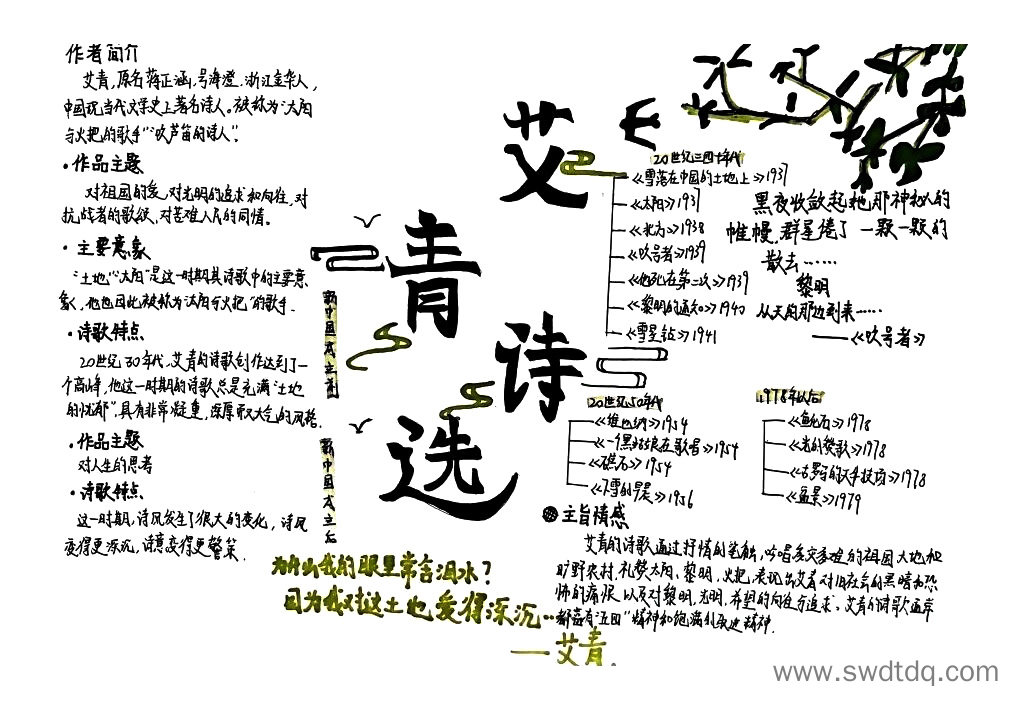 作者简介
艾青，原名蒋正涵，号海澄，浙江金华人，
中国现当代文学史上著名诗人。被称为“太阳
与火把的歌手”“吹芦笛的诗人”。
·作品主题
对祖国的爱，对光明的追求和向往，对
抗战者的歌颂，对苦难人民的同情。
·主要意象
“土地”“太阳”是这一时期其诗歌中的主要意
象，他也因此被称为“太阳与火把”的歌手。
·诗歌特点
20世纪30年代，艾青的诗歌创作达到了一
个高峰，他这一时期的诗歌总是充满“土地
的忧郁”，具有非常凝重，深厚而又大气的风格。
·作品主题
对人生的思考
·诗歌特点
这一时期，诗风发生了很大的变化，诗风
变得更深沉，诗意变得更警策。
新中国成立前
新中国成立后
艾
青
诗
选
20世纪三四十年代
《雪落在中国的土地上》1937
《太阳》1937
《北方》1938
《吹号者》1939
《他死在第二次》1939
《黎明的通知》1940
《雪里钻》1941
黑夜收敛起她那神秘的
帷幔，群星倦了 一颗一颗的
散去……
黎明
从天的那边到来……
——《吹号者》
20世纪50年代
《维也纳》1954
《一个黑姑娘在歌唱》1954
《礁石》1954
《下雪的早晨》1956
1978年以后
《鱼化石》1978
《光的赞歌》1978
《古罗马的大斗技场》1978
《盆景》1979
主旨情感
艾青的诗歌通过抒情的笔触，咏唱多灾多难的祖国大地和
旷野农村，礼赞太阳、黎明、火把，表现出艾青对旧社会的黑暗和恐
怖的痛恨，以及对黎明、光明、希望的向往与追求。艾青的诗歌通常
都富有“五四”精神和饱满的进取精神。
为什么我的眼里常含泪水？
因为我对这土地爱得深沉…
——艾青。
www.swdtdq.com